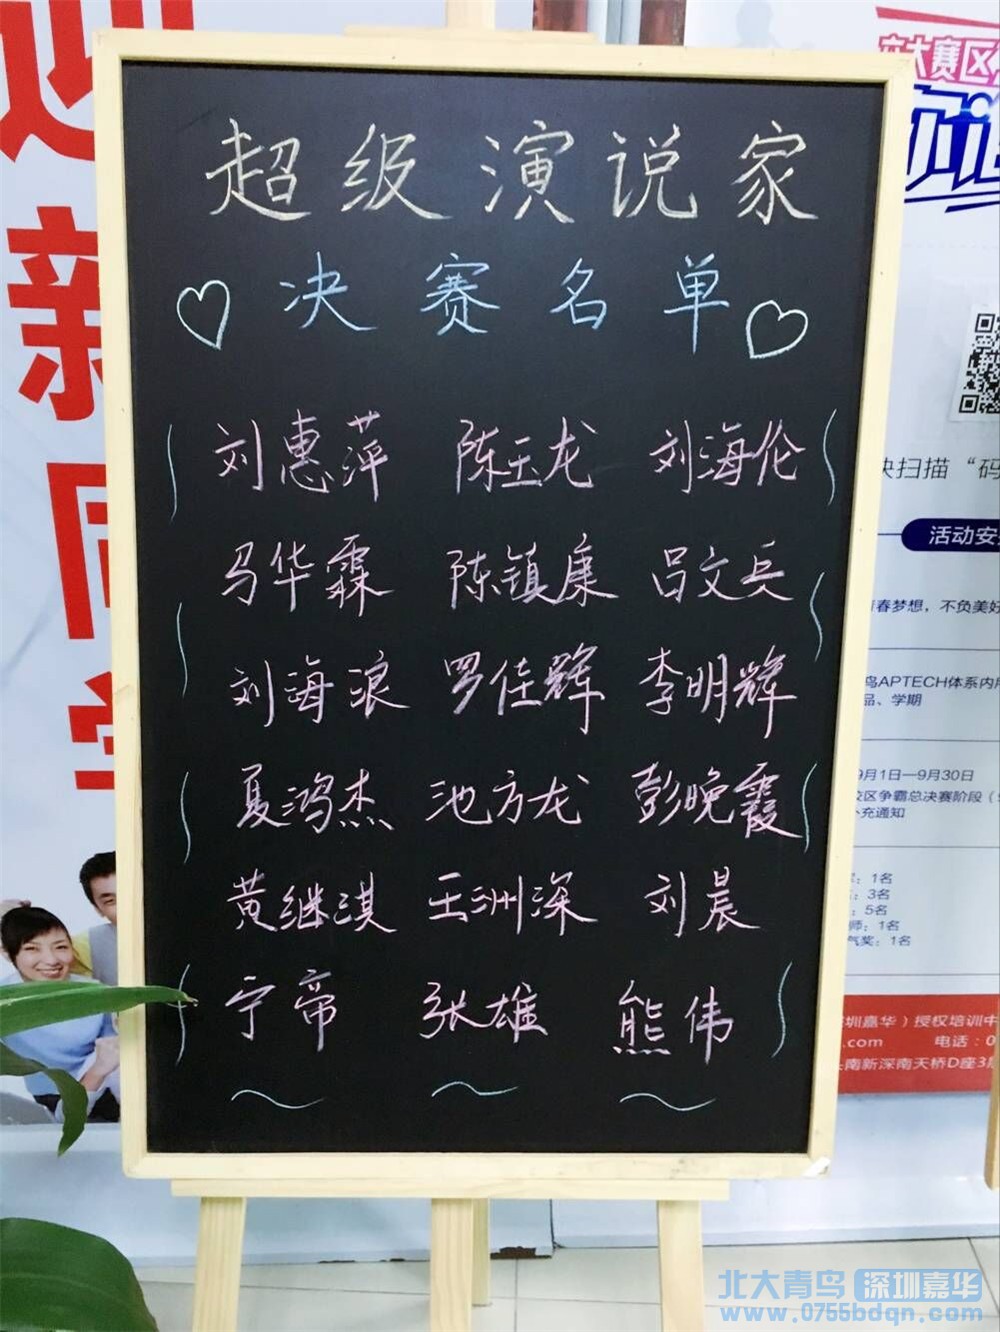 超级演说家
决赛名单
刘惠萍 陈玉龙 刘海伦
马华霖 陈镇康 吕文兵
刘海浪 罗佳辉 李明辉
夏鸿杰 池方龙 彭晚霞
黄继淇 王洲深 刘晨
宁帝 张雄 熊伟
新同
大赛区
扫描“码
活动安
春梦想，不负美好
APTECH体系内
品、学期
9月1日—9月30日
校区争霸总决赛阶段（
补充通知
：1名
：3名
：5名
师：1名
气奖：1名
圳嘉华）授权培训中
.com 电话：0
南新深南天桥D座3
北大青鸟 深圳嘉华
www.0755bdqn.com